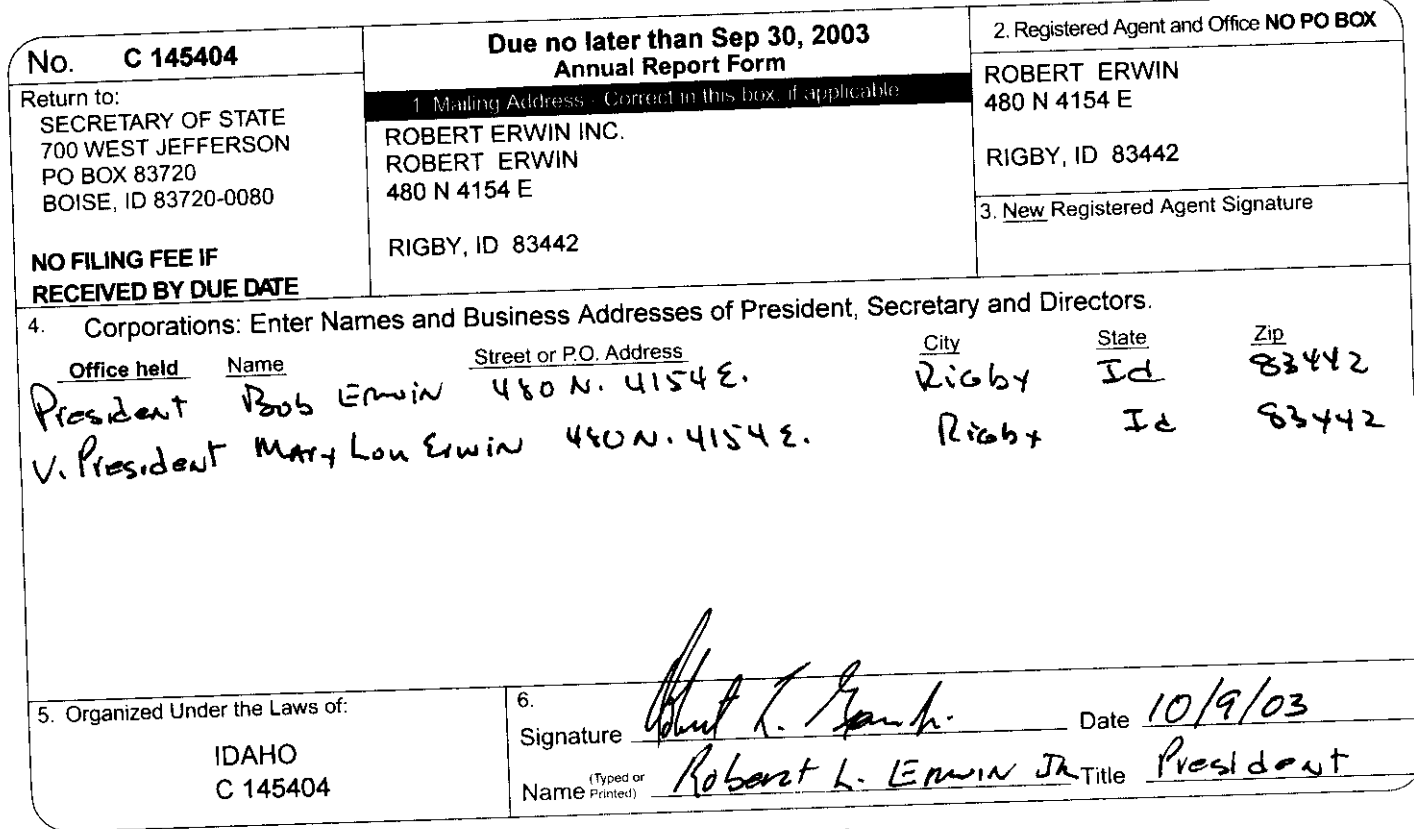 No. C 145404
Return to:
SECRETARY OF STATE
700 WEST JEFFERSON
PO BOX 83720
BOISE, ID 83720-0080
NO FILING FEE IF
RECEIVED BY DUE DATE
Due no later than Sep 30, 2003
Annual Report Form
1. Mailing Address - Correct in this box, if applicable
ROBERT ERWIN INC.
ROBERT ERWIN
480 N 4154 E
RIGBY, ID 83442
2. Registered Agent and Office NO PO BOX
ROBERT ERWIN
480 N 4154 E
RIGBY, ID 83442
3. New Registered Agent Signature
4. Corporations: Enter Names and Business Addresses of President, Secretary and Directors.
Office held Name Street or P.O. Address City State Zip
President Bob Erwin 480 N. 4154 E. Rigby Id 83442
V. President Mary Lou Erwin 480 N. 4154 E. Rigby Id 83442
5. Organized Under the Laws of:
IDAHO
C 145404
6.
Signature Robert L. Erwin Jr. Date 10/9/03
Name (Typed or Printed) Robert L. Erwin Jr Title President